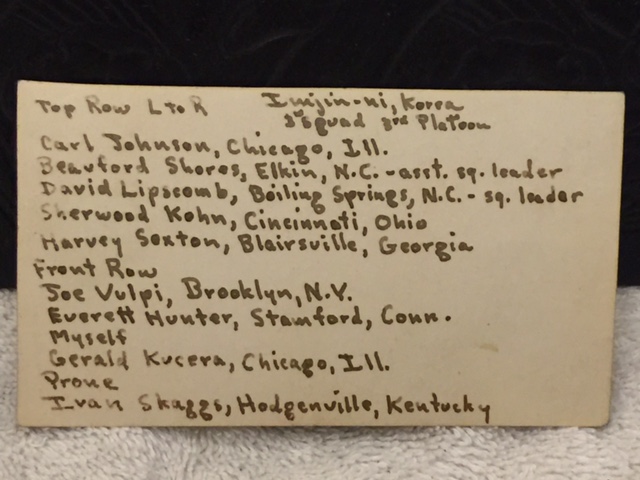 Top Row L to R Imjin-ni, Korea
Squad 3rd Platoon
Carl Johnson, Chicago, Ill.
Beauford Shores, Elkin, N.C. - asst. sq. leader
David Lipscomb, Boiling Springs, N.C. - sq. leader
Sherwood Kohn, Cincinnati, Ohio
Harvey Sexton, Blairsville, Georgia
Front Row
Joe Vulpi, Brooklyn, N.Y.
Everett Hunter, Stamford, Conn.
Myself
Gerald Kucera, Chicago, Ill.
Prone
Ivan Skaggs, Hodgenville, Kentucky